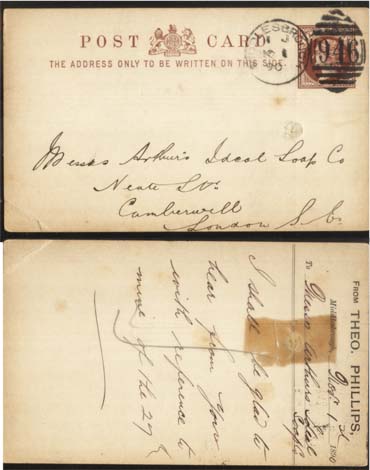 POST CARD
THE ADDRESS ONLY TO BE WRITTEN ON THIS SIDE.
946
Messrs Arthur's Ideal Soap Co
Neate St.
Camberwell
London S.E.
FROM THEO. PHILLIPS,
Middlesbrough, Nov 1st 1890
To
I shall be glad to
hear from yours
with reference to
mine of the 29